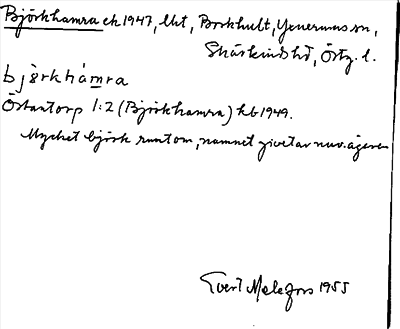 Björkhamra ek 1947, lht, Borkhult, Yxnerums sn,
Skärkinds hd, Östg. l.
bjö̀rkhámra
Östantorp 1:2 (Björkhamra) hb 1949.
Mycket björk runtom, namnet givet av nuv. ägaren
Evert Melefors 1955